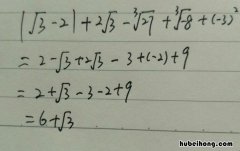 |√3-2|+2√3-³√27+³√-8+(-3)²
=2-√3+2√3-3+(-2)+9
=2+√3-3-2+9
=6+√3
www.hubeihong.com